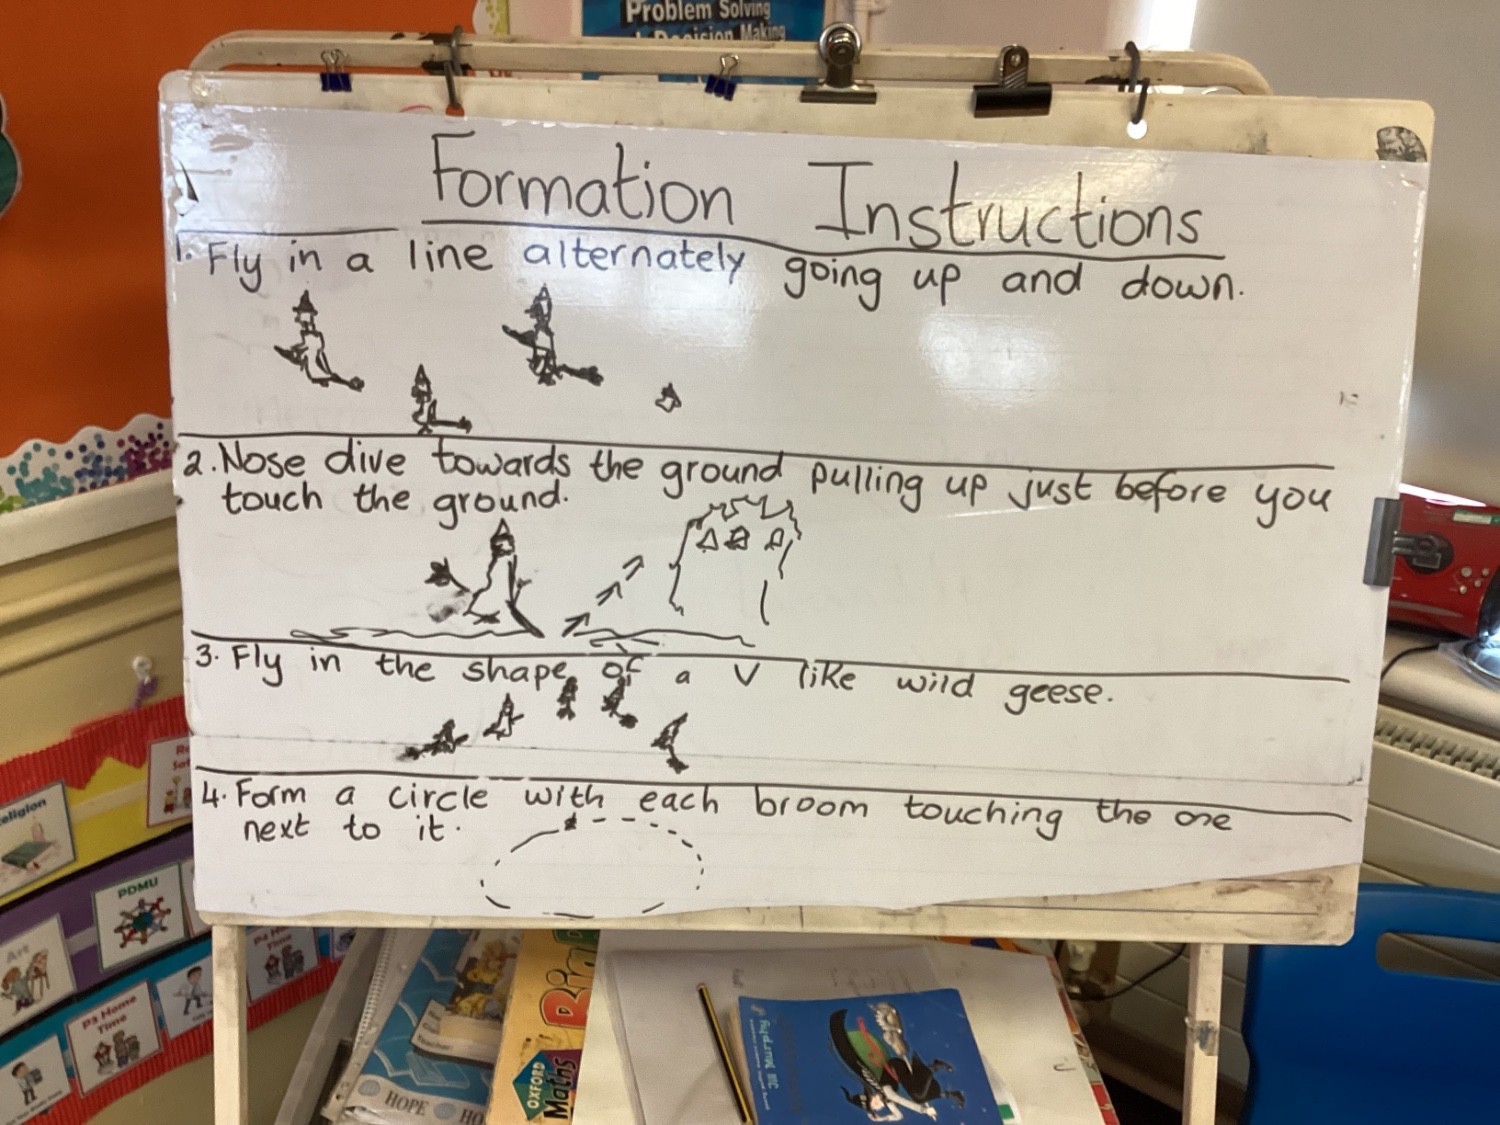 Problem Solving
Decision Making
Formation Instructions
1. Fly in a line alternately going up and down.
2. Nose dive towards the ground pulling up just before you
touch the ground.
3. Fly in the shape of a V like wild geese.
4. Form a circle with each broom touching the one
next to it.
PDMU
Art
P3 Home
Time
HOPE
OXFORD
Maths
Jill Murphy